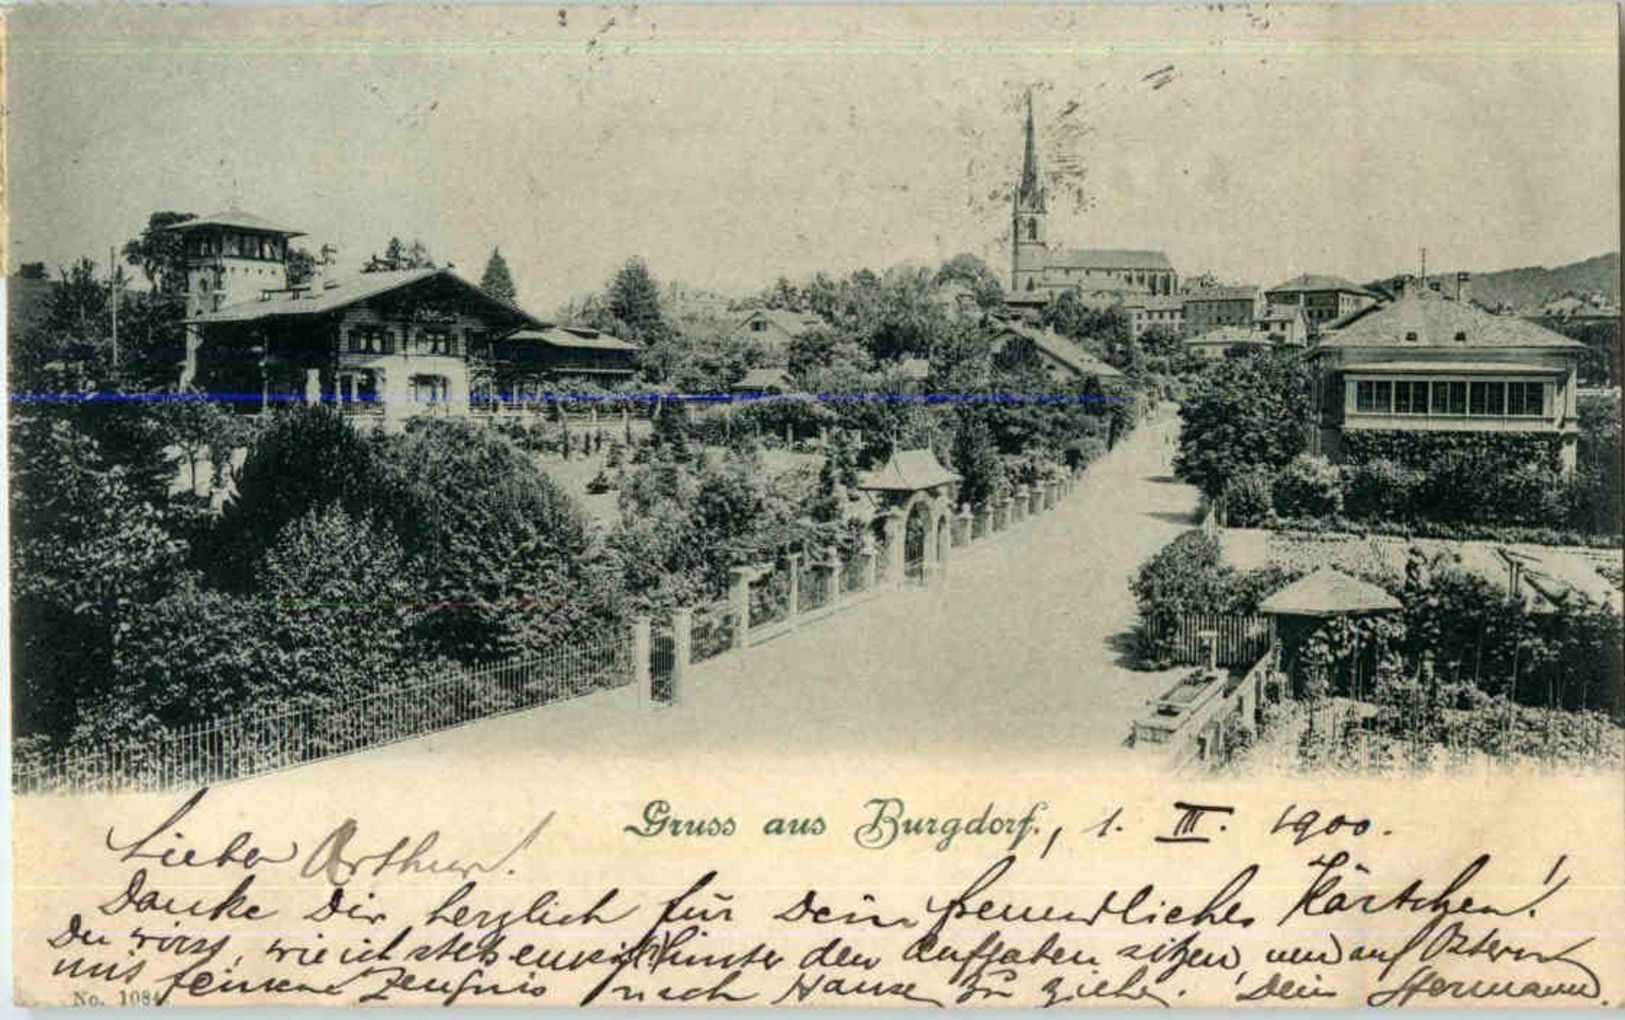 Gruss aus Burgdorf., 1. III. 1900.
Lieber Arthur!
Danke Dir herzlich für Dein freundliches Kärtchen!
Du wirst, wie ich stets hinter den Aufgaben sitzen, um auf Ostern
mit feinem Zeugnis nach Hause zu ziehen. Dein Hermann.
No. 1084.